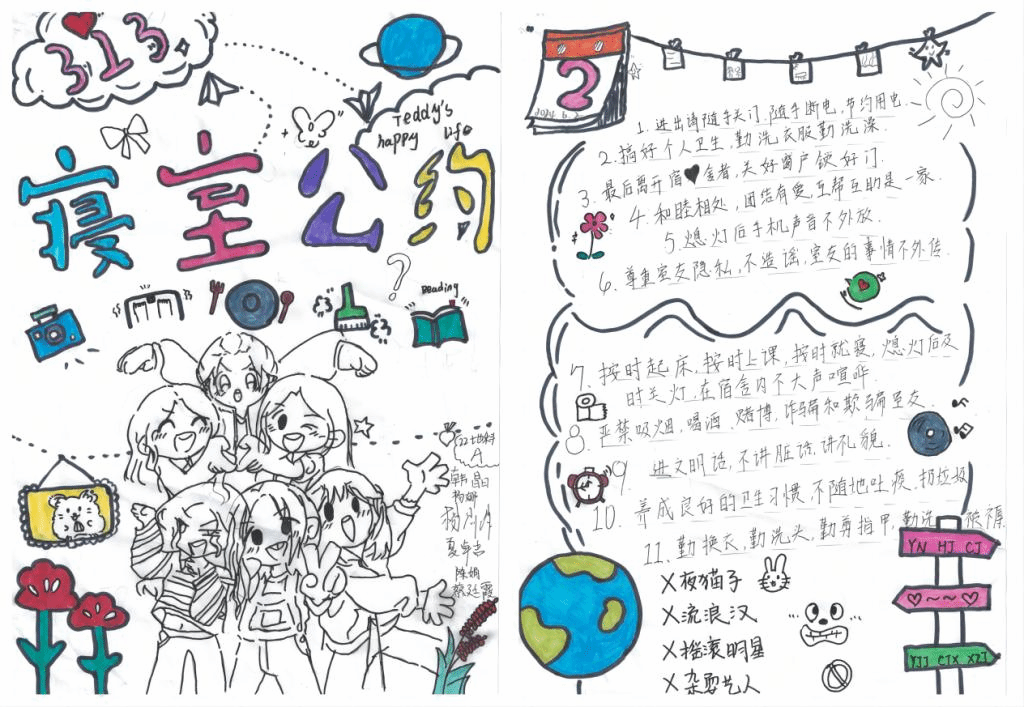 313
Teddy's
happy life
寝室公约
?
Reading
22地科
A
韩晶
杨娜
夏卓志
陈娟
2
1. 进出请随手关门,随手断电,节约用电.
2. 搞好个人卫生,勤洗衣服勤洗澡.
3. 最后离开宿舍者,关好窗户锁好门.
4. 和睦相处,团结有爱,互帮互助是一家.
5. 熄灯后手机声音不外放.
6. 尊重室友隐私,不造谣,室友的事情不外传.
7. 按时起床,按时上课,按时就寝,熄灯后及
时关灯,在宿舍内不大声喧哗.
8. 严禁吸烟,喝酒,赌博,诈骗和欺骗室友.
9. 进文明话,不讲脏话,讲礼貌.
10. 养成良好的卫生习惯,不随地吐痰,扔垃圾
11. 勤换衣,勤洗头,勤剪指甲,勤洗被褥
X夜猫子
X流浪汉
X摇滚明星
X杂耍艺人
YN HJ CJ
YJJ CJX XZJ